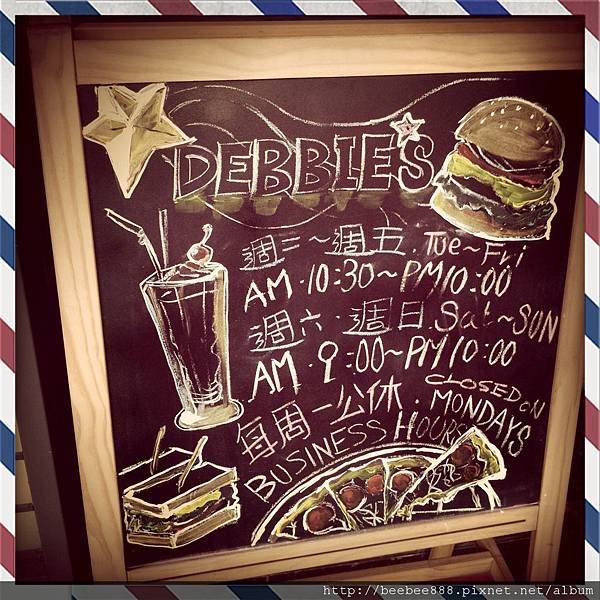 DEBBIE'S
週二~週五.Tue~Fri
AM.10:30~PM10:00
週六.週日.Sat~SUN
AM.9:00~PM10:00
每周一公休.CLOSED ON
MONDAYS
BUSINESS HOURS
http://beebee888.pixnet.net/album